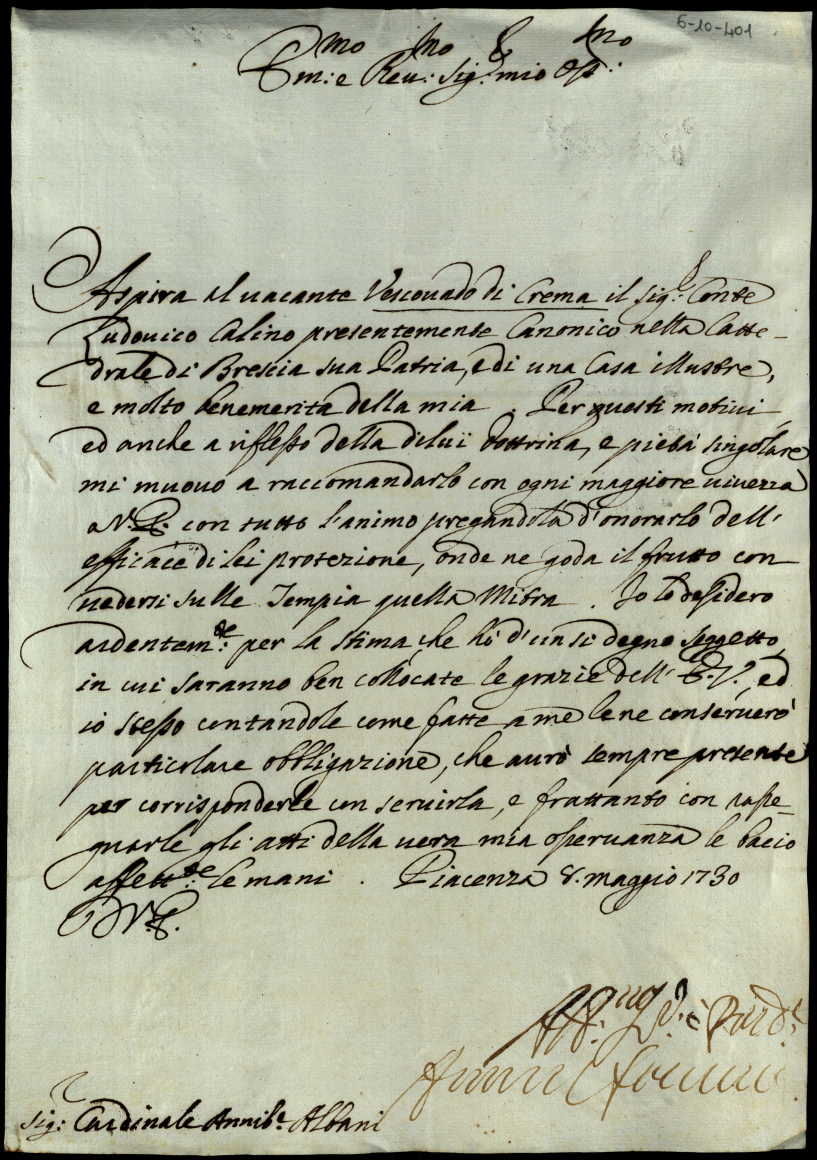 6-10-401
Em:mo e Reu:mo Sig:r mio Oss:mo
Aspira al uacante Vescouado di Crema il sig:r Conte
Ludouico Calino presentemente Canonico nella Catte-
drale di Brescia sua Patria, e di una Casa illustre,
e molto benemerita della mia. Per questi motiui,
ed anche a riflesso della dilui dottrina, e pietà singolare
mi muouo a raccomandarlo con ogni maggiore uiuezza
a V.E. con tutto l'animo pregandola d'onorarlo dell'
efficace di lei protezione, onde ne goda il frutto con
uedersi sulle Tempia quella Mitra. Io lo desidero
ardentem:te per la stima, che hò d'un si degno soggetto,
in cui saranno ben collocate le grazie dell' E.V., ed
io stesso contandole come fatte a me le ne conseruerò
particolare obbligazione, che aurò sempre presente
per corrisponderle con seruirla, e frattanto con rasse-
gnarle gli atti della uera mia osseruanza le bacio
affett:te le mani. Piacenza 8. maggio 1730
D V.E.
Aff:mo
Sig:r Cardinale Annib:e Albani